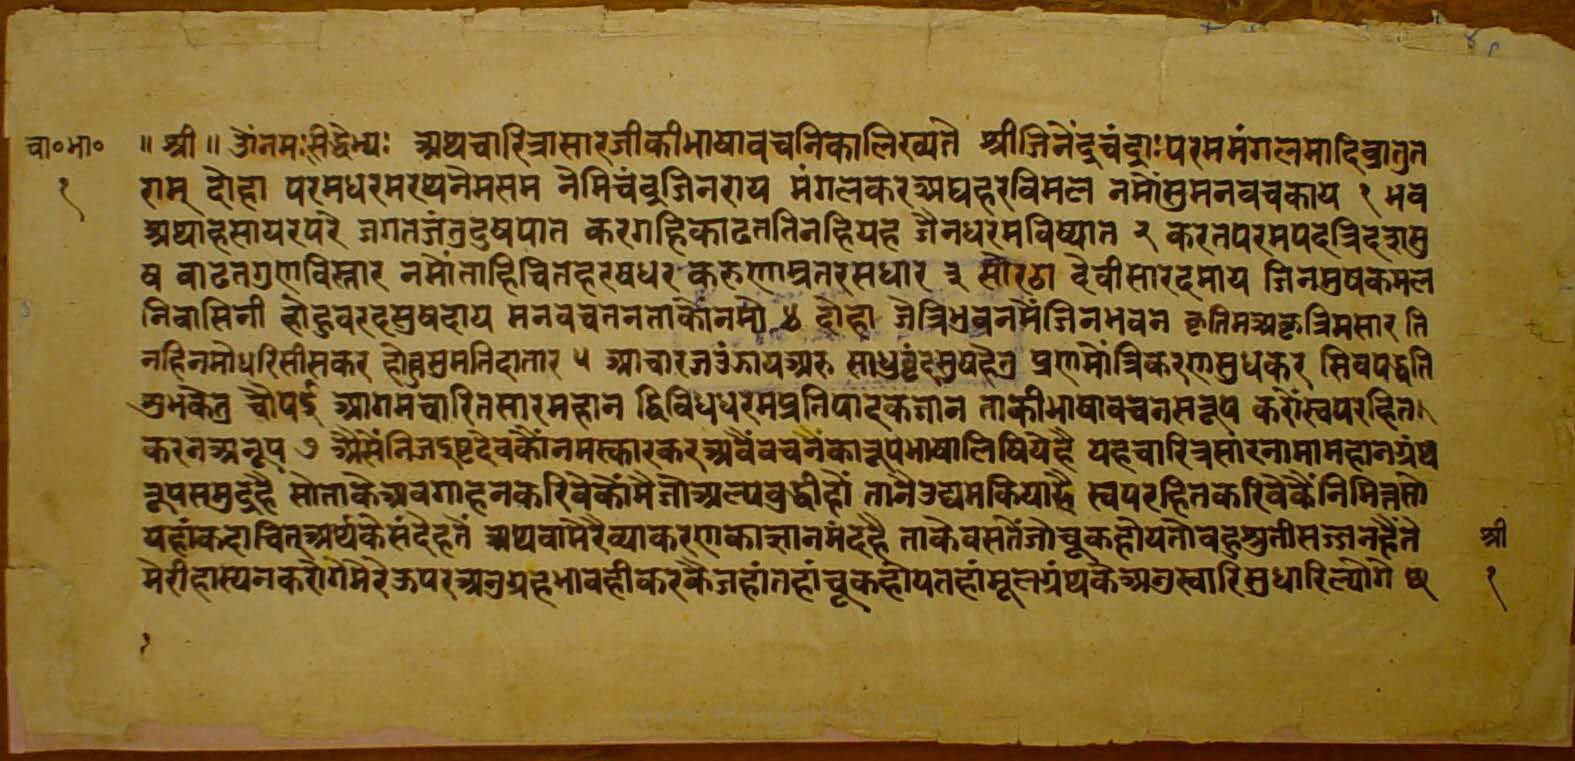 चा॰भा॰
१
॥ श्री ॥ ॐनमःसीद्धेभ्यः अथचारित्रासारजीकीभाषावचनिकालिख्यते श्रीजिनेंदुचंद्राःपरममंगलमादिब्रातुत
राम् दोहा परमधरमरथनेमसम नेमिचंद्रजिनराय मंगलकरअघहरविमल नमोंसुमनवचकाय १ भव
अथाहसायरपरे जगतजंतुदुषपात करगहिकाढततिनहियह जैनधरमविष्यात २ करतपरमपदत्रिदशसु
ष वाढतगुणविस्तार नमोंताहिचितहरषधर करुणाम्रतरसधार ३ सोरठा देवीसारदमाय जिनमुषकमल
निवासिनी होहुवरदसुषदाय मनवचतनताकौंनमौ ४ दोहा जेत्रिभुवनमैंजिनभवन कृतिमअकृत्रिमसार ति
नहिनमौधरिसीसकर होहुसुमतिदातार ५ आचारजउंझायअरु साधुवृंदसुयहेत प्रणमोंत्रिकरणसुधकर सिवपद्धति
सुभकेतु चौपई आगमचारितसारमहान द्विविधधरमप्रतिपादकजान ताकीभाषावचनसरूप करोंस्वपरहित
करनअनूप ७ अैसेंनिजइष्टदेवकौंनमस्कारकरअवैंवचनैंकारूपभाषालिषियेहै यहचारित्रसारनामामहानग्रंथ
रूपसमुद्रहै सोताकेअवगाहनकरिवेकौंमैजोअल्पबुद्धीहौं तानेउद्यमकियाहै स्वपरहितकरिवेकैंनिमित्तसो
यहांकदाचित्अर्थकेसंदेहतें अथवामेरेव्याकरणकाज्ञानमंदहै ताकेवसतेंजोचूकहोयतौबहुश्रुतीसज्जनहैंते
मेरीहास्यनकरोगेमेरेऊपरअनुग्रहभावहीकरकेजहांतहांचूकहोयतहांमूलग्रंथकैअनुस्वारिसुधारिल्योगे
श्री
१